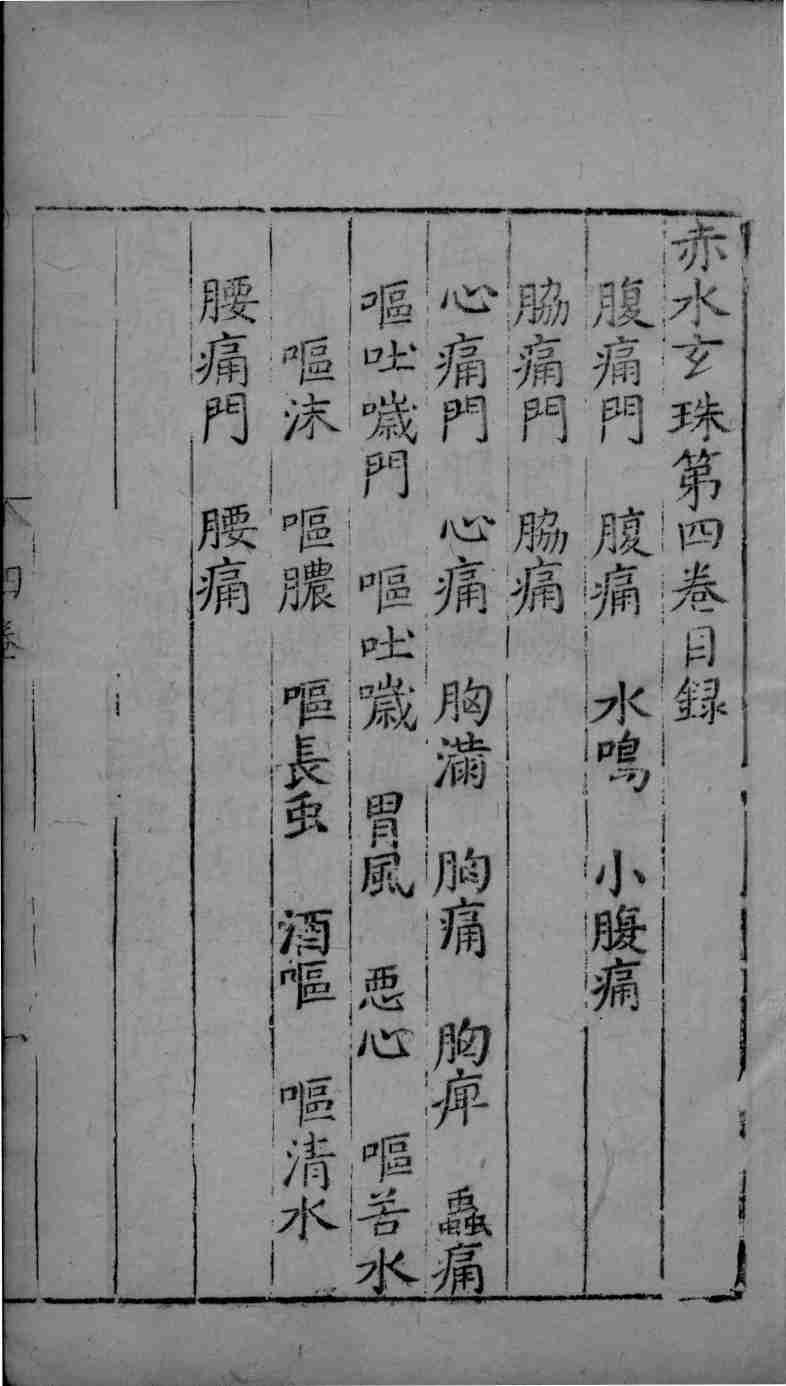 赤水玄珠第四卷目録
腹痛門 腹痛 水鳴 小腹痛
脇痛門 脇痛
心痛門 心痛 胸滿 胸痛 胸痺 蟲痛
嘔吐噦門 嘔吐噦 胃風 惡心 嘔苦水
嘔沫 嘔膿 嘔長虫 酒嘔 嘔清水
腰痛門 腰痛
四卷 一